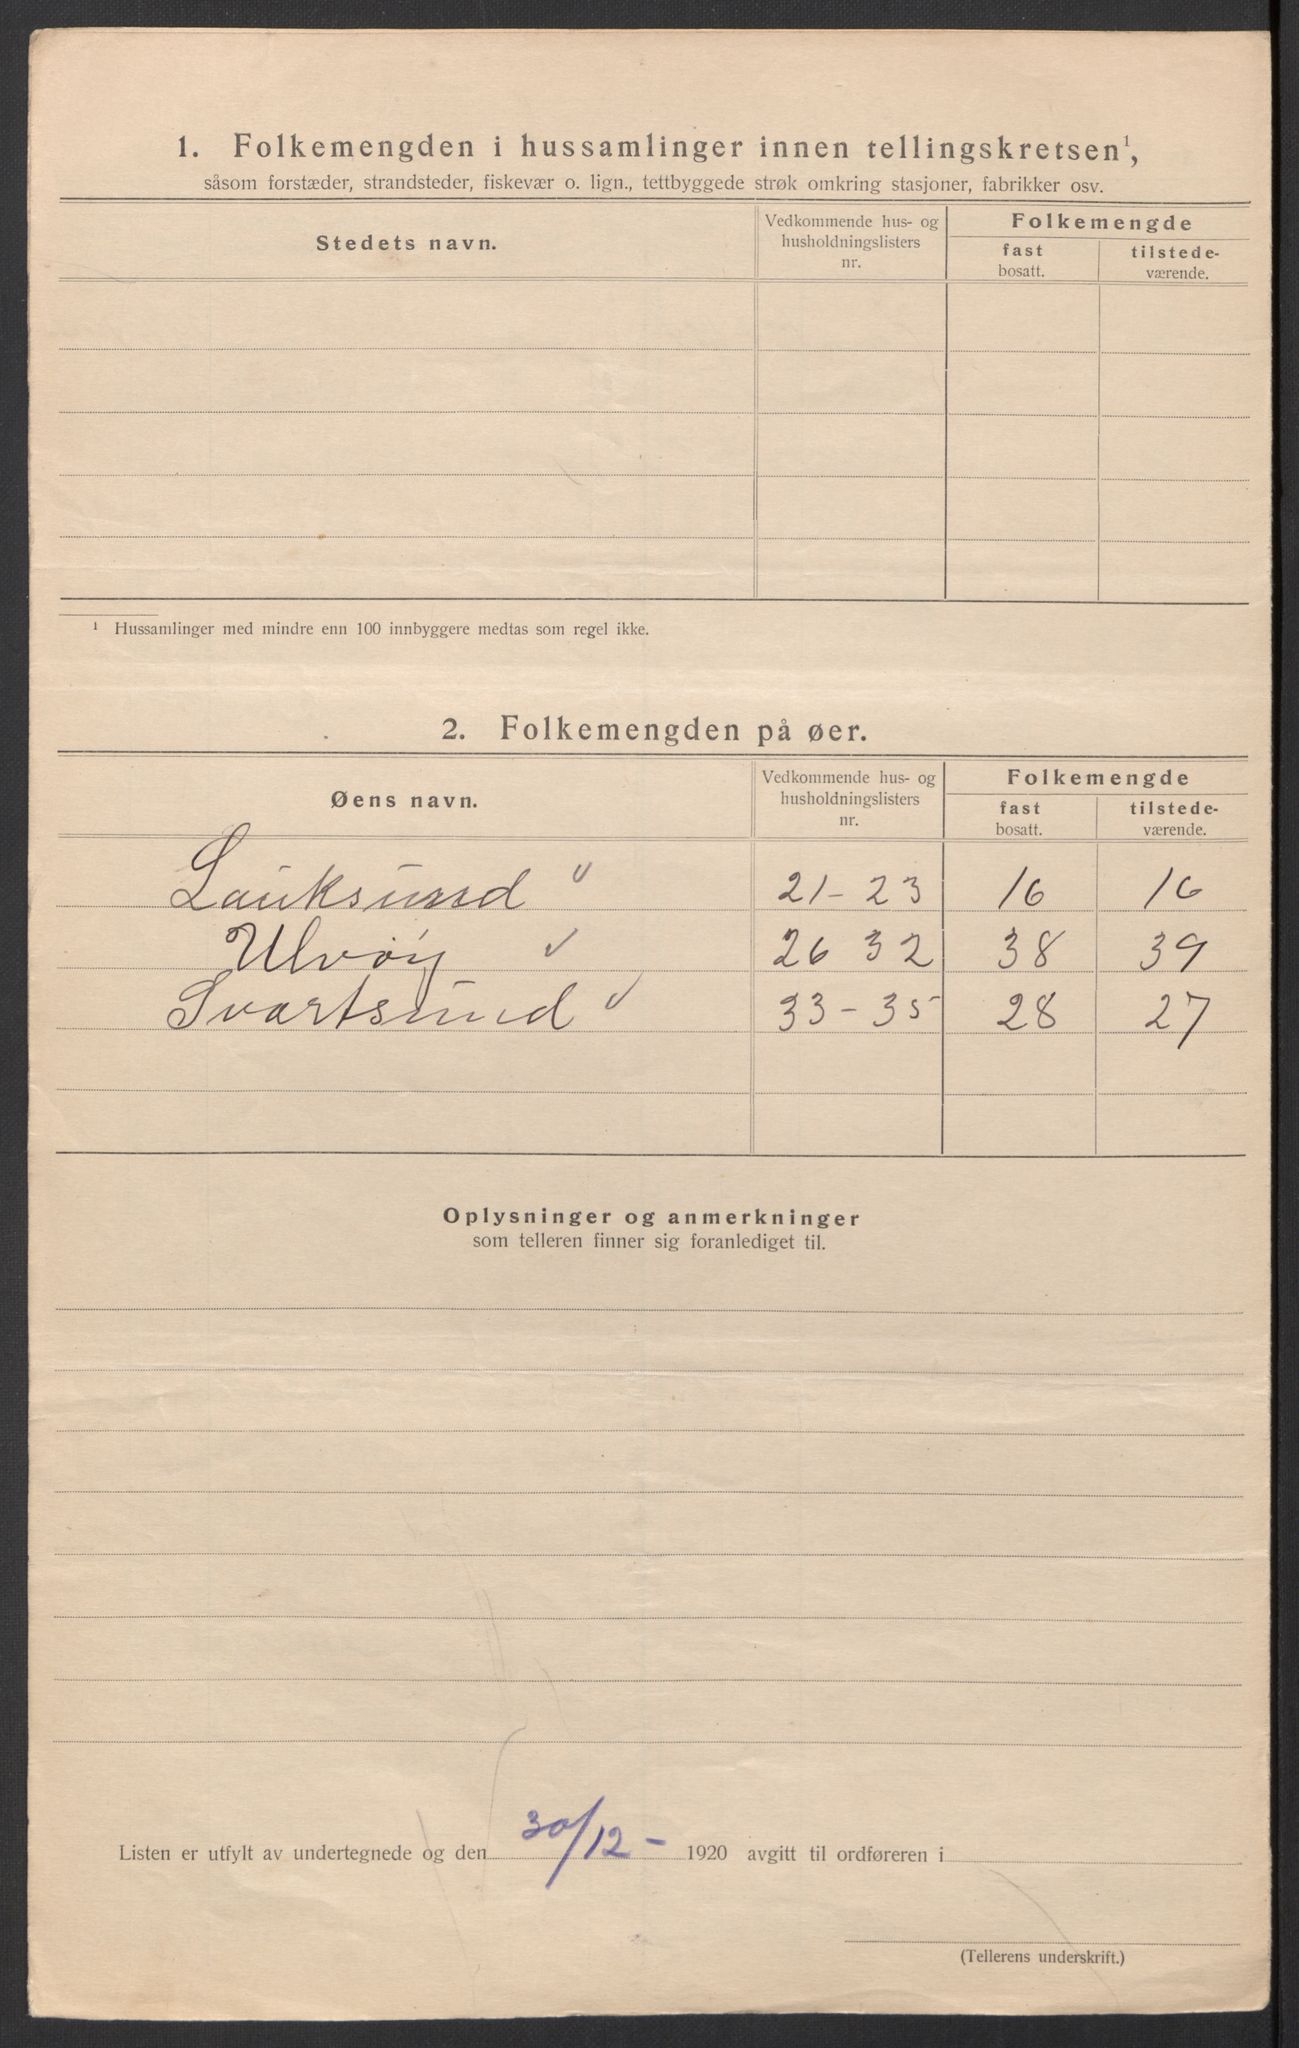 1. Folkemengden i hussamlinger innen tellingskretsen¹,
såsom forstæder, strandsteder, fiskevær o. lign., tettbyggede strøk omkring stasjoner, fabrikker osv.
Stedets navn.
Vedkommende hus- og
husholdningslisters
nr.
Folkemengde
fast
bosatt.
tilstede-
værende.
¹ Hussamlinger med mindre enn 100 innbyggere medtas som regel ikke.
2. Folkemengden på øer.
Øens navn.
Vedkommende hus- og
husholdningslisters
nr.
Folkemengde
fast
bosatt.
tilstede-
værende.
Lauksund 21-23 16 16
Ulvøy 26 32 38 39
Svartsund 33-35 28 27
Oplysninger og anmerkninger
som telleren finner sig foranlediget til.
Listen er utfylt av undertegnede og den 30/12- 1920 avgitt til ordføreren i
(Tellerens underskrift.)